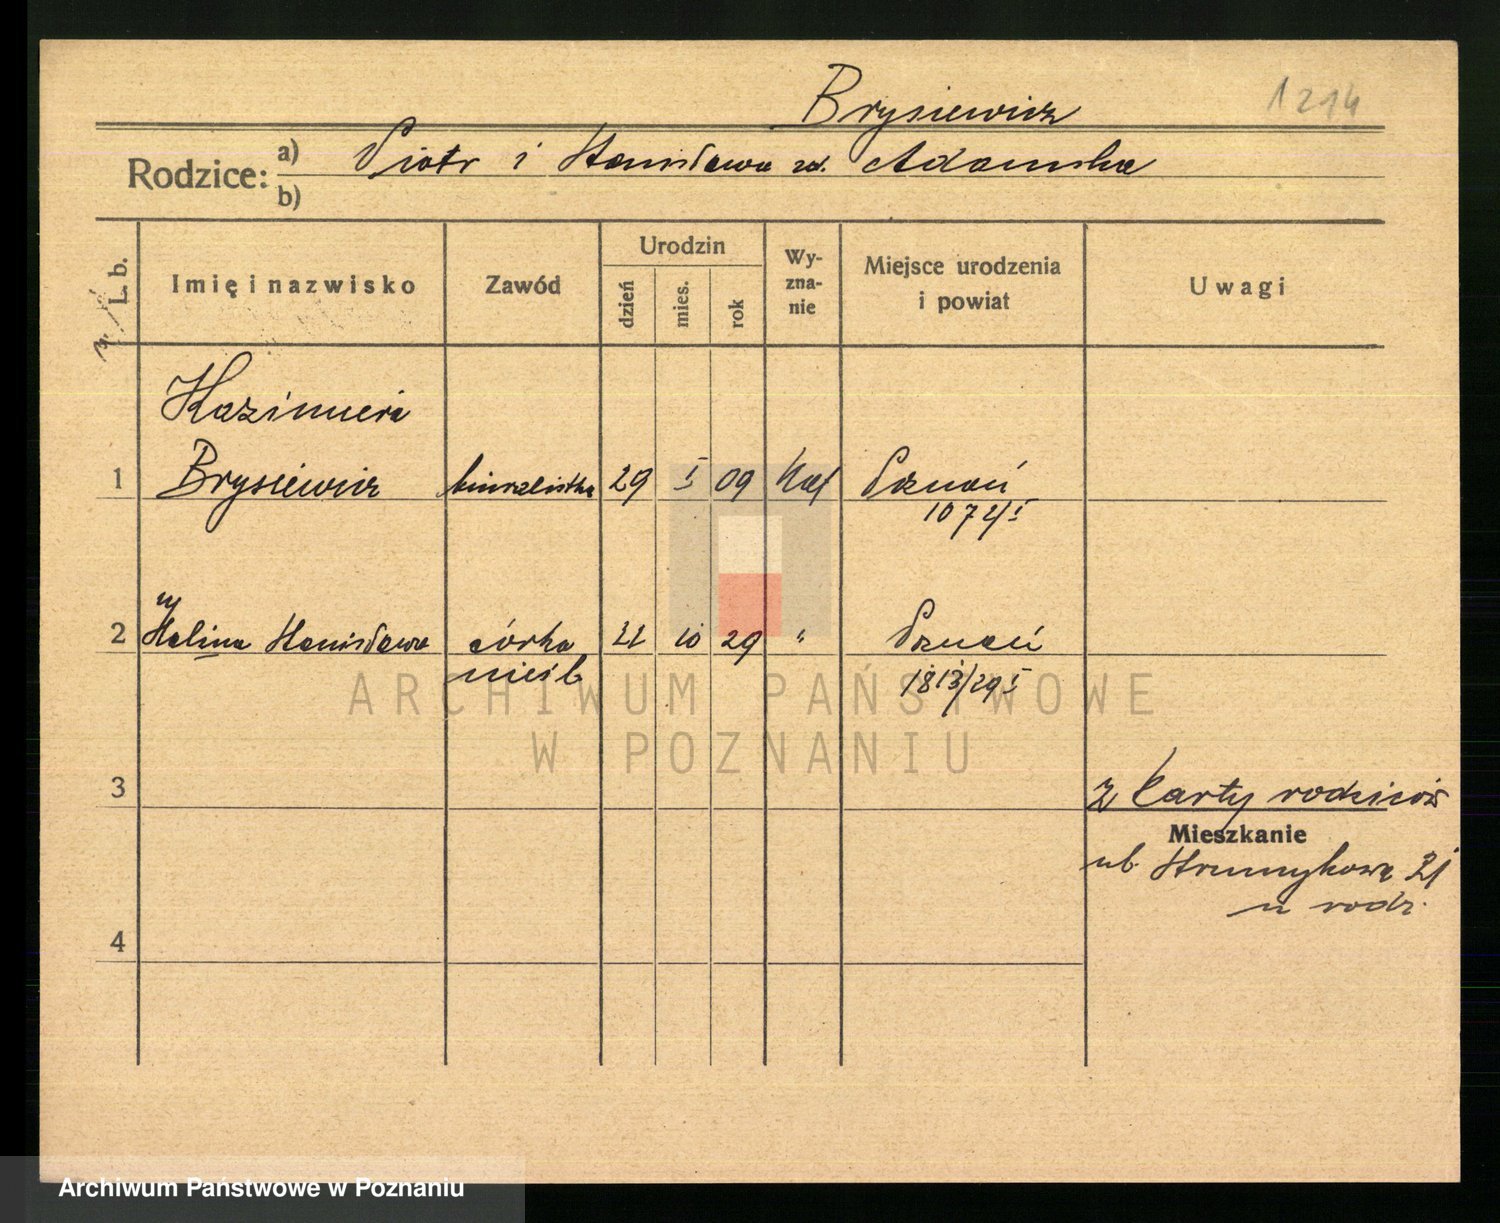 Brysiewicz
1214
Rodzice: a) Piotr i Stanisława zd. Adamska
b)
L. b.
Imię i nazwisko
Zawód
Urodzin
dzień
mies.
rok
Wy-
zna-
nie
Miejsce urodzenia
i powiat
Uwagi
Kazimiera
1 Brysiewicz biuralistka 29 I 09 Kat Poznań
1072/I
2 Halina Stanisława córka 22 10 29 " Poznań
nieśl. 1813/29 I
3 z karty rodziców
Mieszkanie
ul. Strumykowa 21
u rodz.
4
ARCHIWUM PAŃSTWOWE
W POZNANIU
Archiwum Państwowe w Poznaniu